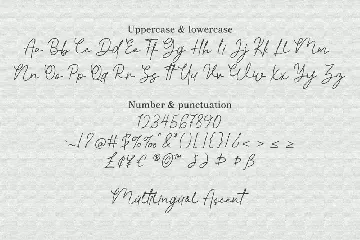 Uppercase & lowercase
Aa Bb Cc Dd Ee Ff Gg Hh Ii Jj Kk Ll Mm
Nn Oo Pp Qq Rr Ss Tt Uu Vv Ww Xx Yy Zz
Number & punctuation
1234567890
~!?@#$%‰^&*(){}[]/<>≤≥
£¢¥€®©™
Multilingual Accent